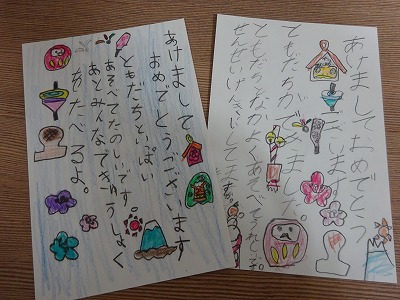 あけまして
おめでとうございます
ともだちといっぱい
あそべてたのしいです。
あとみんなできゅうしょく
をたべるよ。
あけましておめでとう
ございます
ともだちができました。
ともだちとなかよくあそべてうれしいです。
せんせいげんきにしてますか。